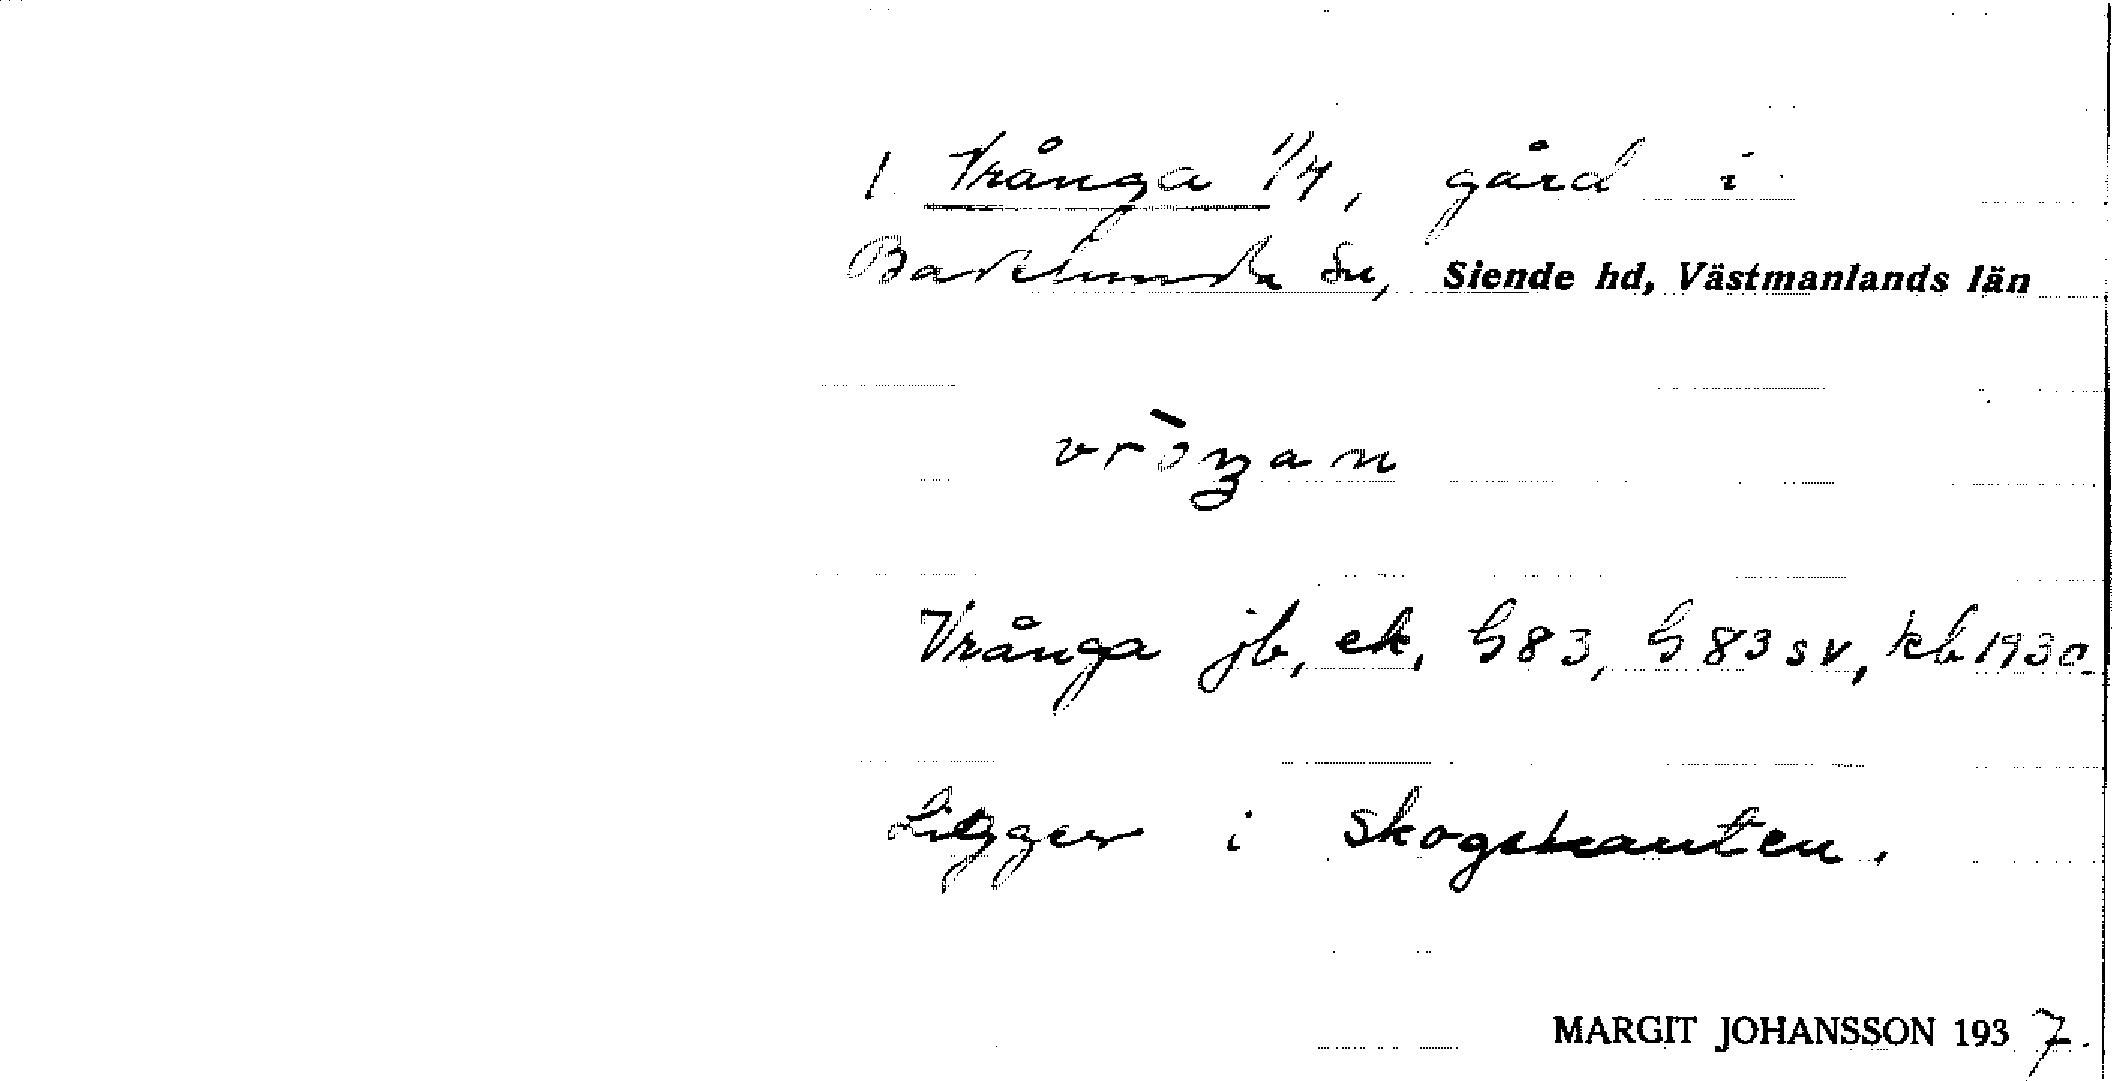 1 Vrånga 1/4, gård i
Badelunda sn, Siende hd, Västmanlands län
vròŋan
Vrånga jb, ek, G83, G83sv, kb 1930.
Ligger i skogskanten.
MARGIT JOHANSSON 1937.